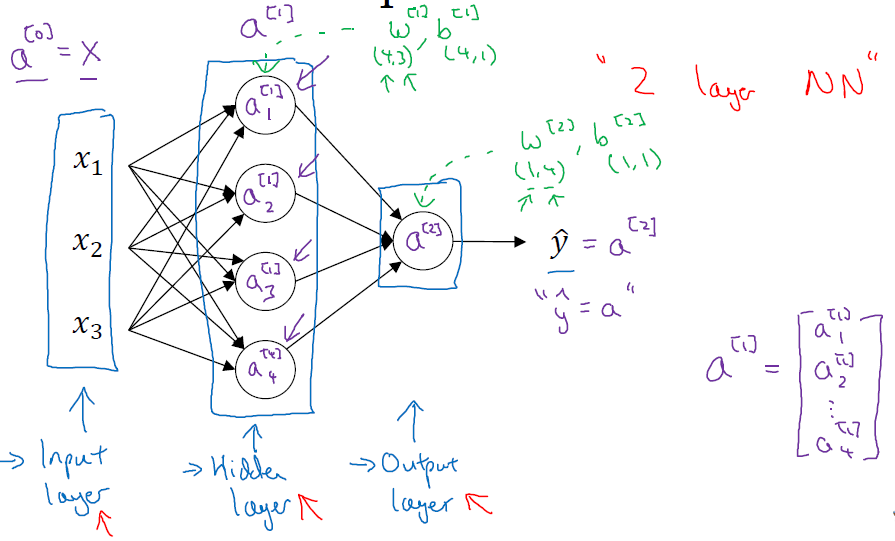 a^[0] = X
a^[1]
w^[1], b^[1]
(4,3) (4,1)
" 2 layer NN "
x₁
x₂
x₃
a₁^[1]
a₂^[1]
a₃^[1]
a₄^[4]
a^[2]
w^[2], b^[2]
(1,4) (1,1)
ŷ = a^[2]
" ŷ = a "
a^[1] = [ a₁^[1]
a₂^[1]
⋮
a₄^[1] ]
→ Input
layer
→ Hidden
layer
→ Output
layer